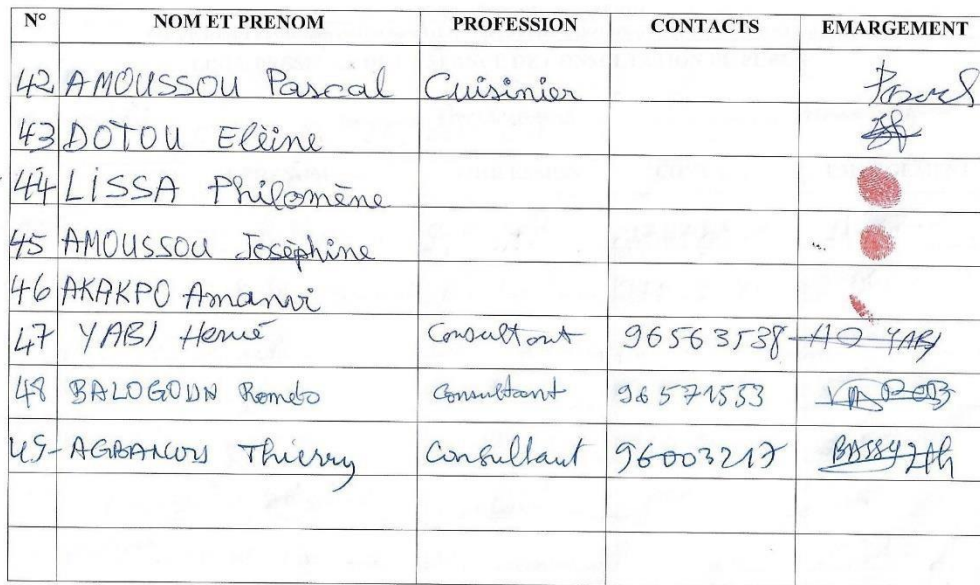 N° NOM ET PRENOM PROFESSION CONTACTS EMARGEMENT
42 AMOUSSOU Pascal Cuisinier
43 DOTOU Elèine
44 LISSA Philomène
45 AMOUSSOU Joséphine
46 AKAKPO Amanvi
47 YABI Hervé Consultant 96563538 YABI
48 BALOGOUN Roméo Consultant 96571553
49- Thierry Consultant 96003217